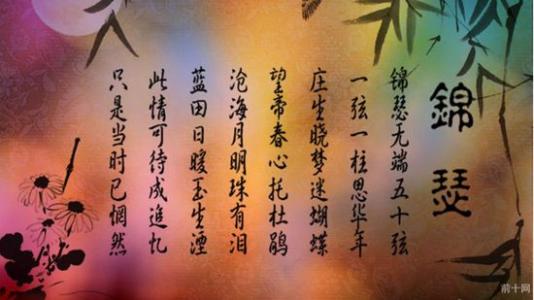 錦瑟
锦瑟无端五十弦
一弦一柱思华年
庄生晓梦迷蝴蝶
望帝春心托杜鹃
沧海月明珠有泪
蓝田日暖玉生湮
此情可待成追忆
只是当时已惘然
前十网